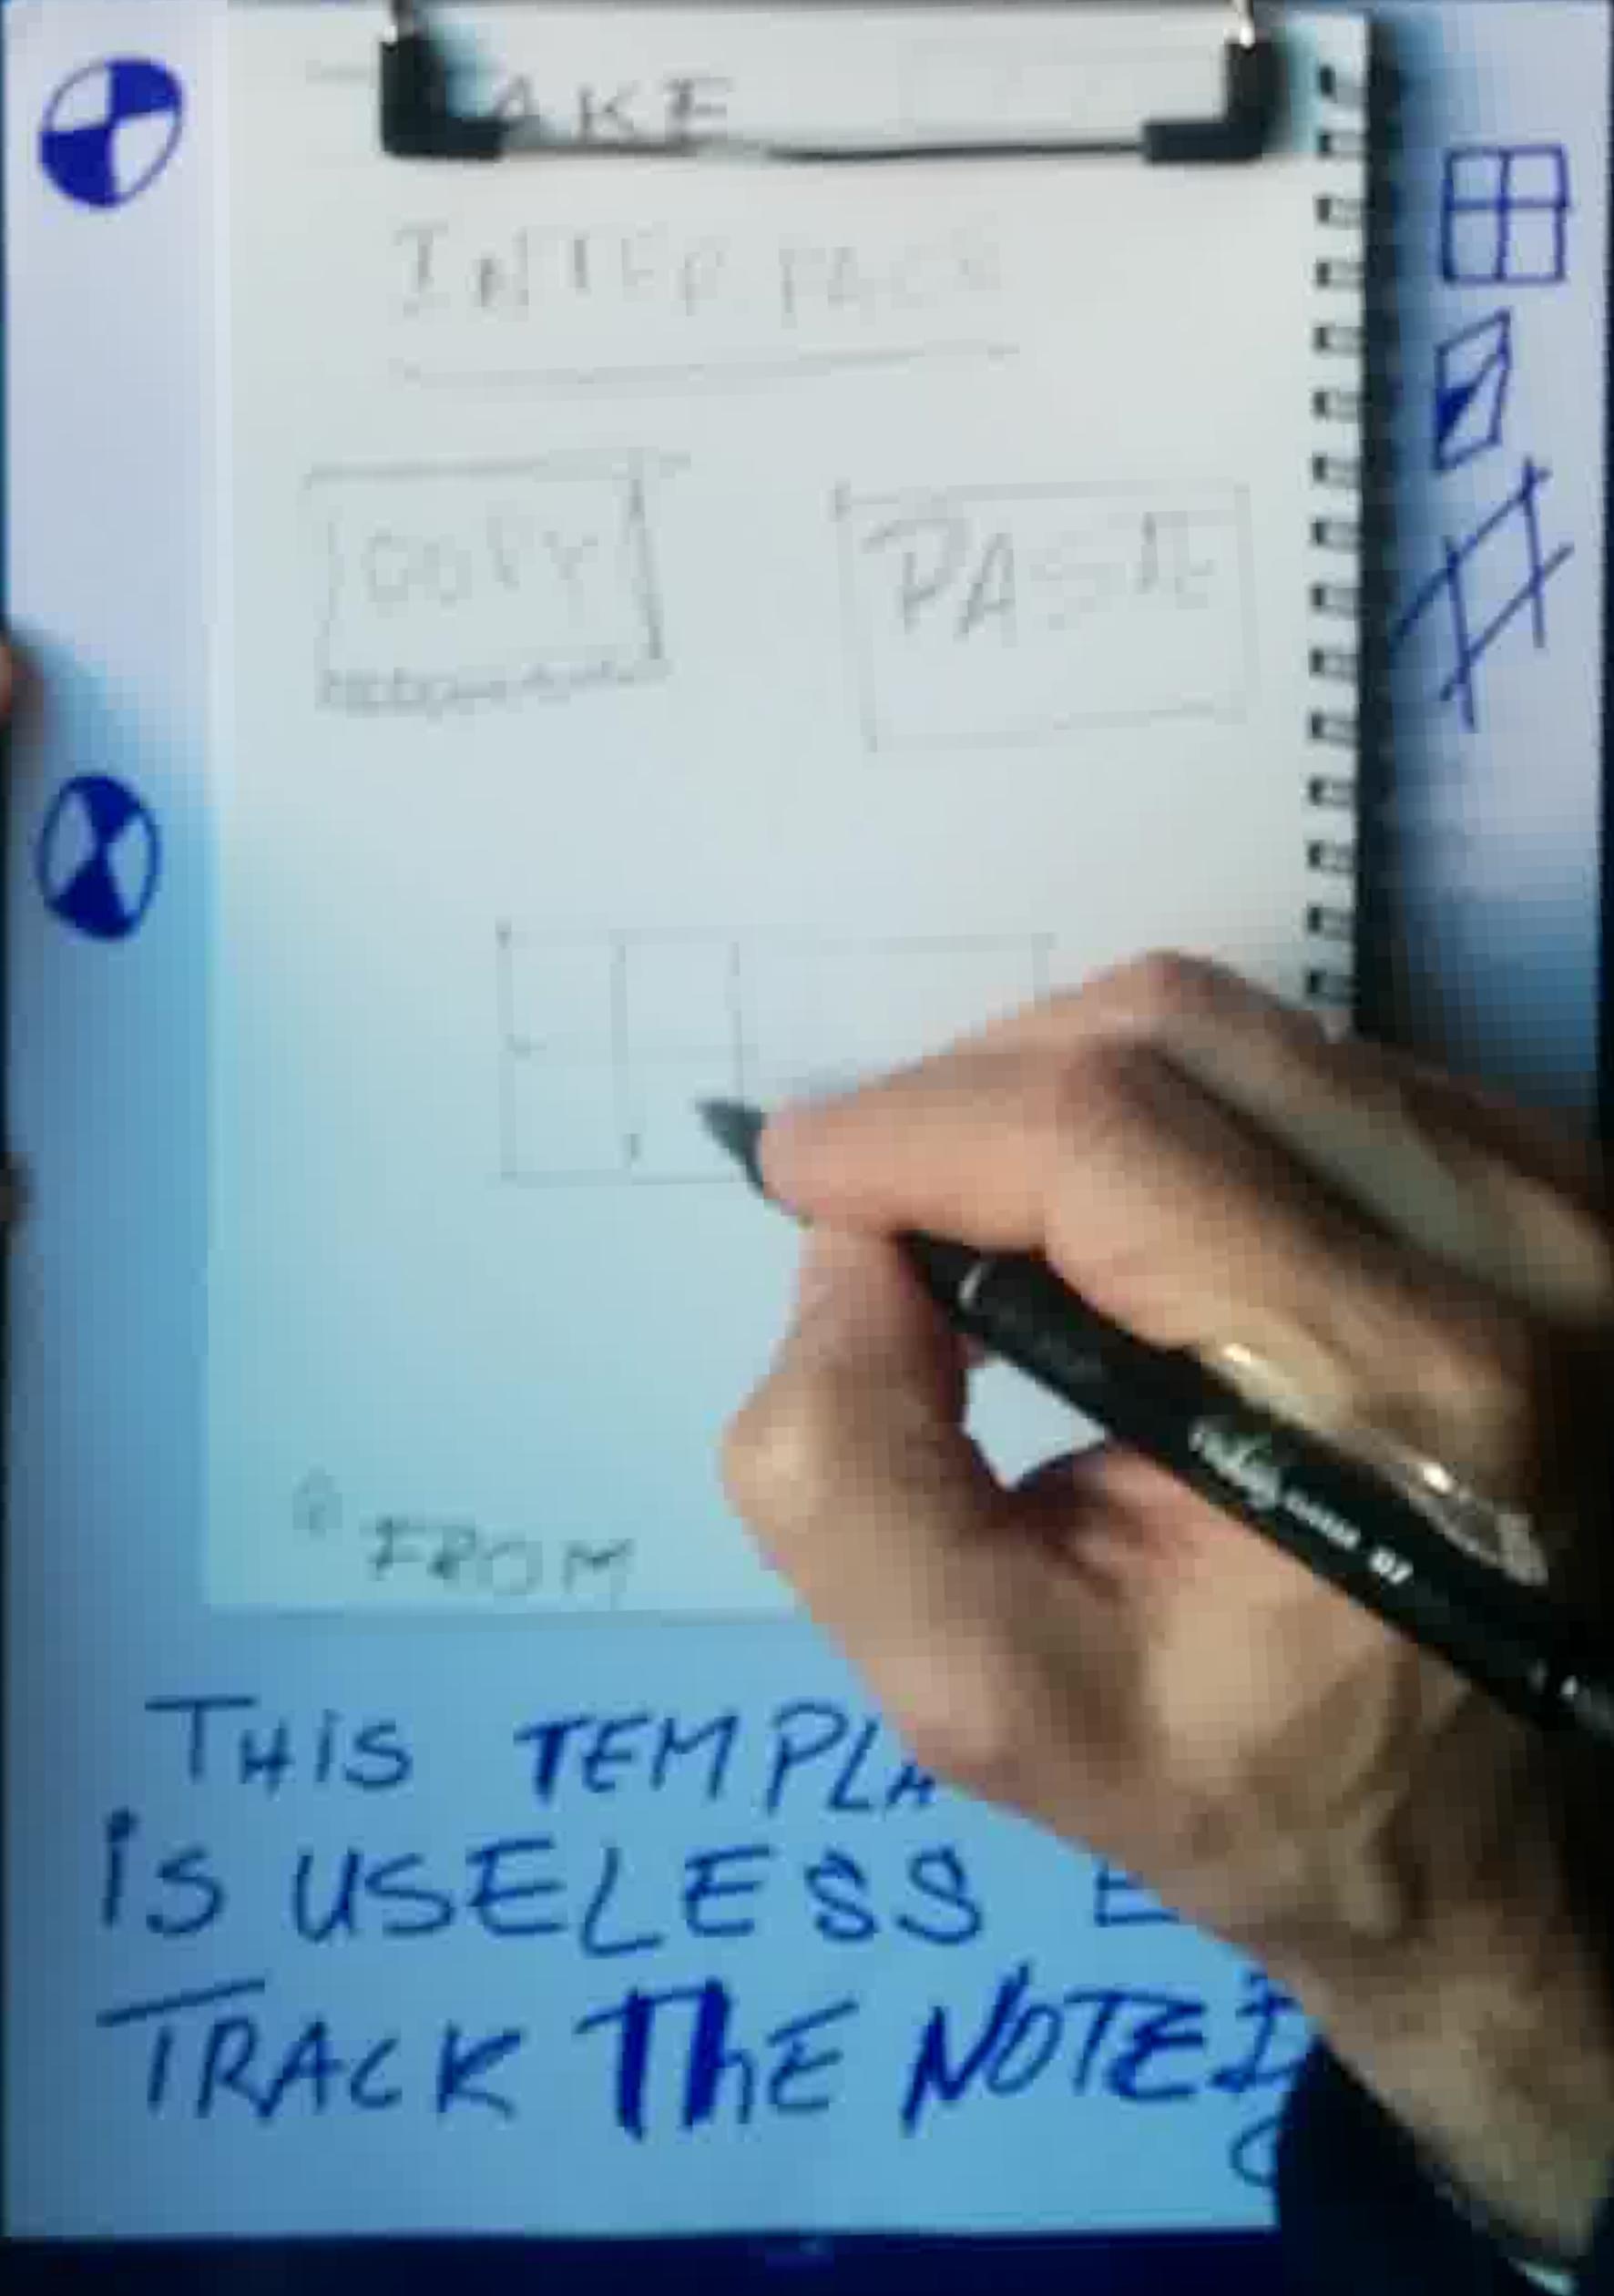 AKE
INTERFACE
COPY PASTE
FROM
THIS TEMPLA
IS USELESS E
TRACK THE NOTE
07